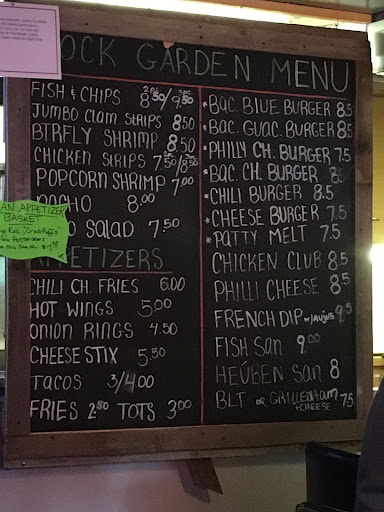 OCK GARDEN MENU
FISH & CHIPS 8 50/9 50
JUMBO CLAM STRIPS 8 50
BTRFLY SHRIMP 8 50
CHICKEN STRIPS
POPCORN SHRIMP 7 00
NACHO 8 00
O SALAD 7.50
AN APPETIZER
BASKET
PETIZERS
CHILI CH. FRIES 6.00
HOT WINGS 5 00
ONION RINGS 4.50
CHEESE STIX 5.50
TACOS 3/4.00
FRIES 2 50 TOTS 3 00
*BAC. BLUE BURGER 8.5
*BAC. GUAC. BURGER 8.5
*PHILLY CH. BURGER 7.5
*BAC. CH. BURGER 8
*CHILI BURGER 8.5
*CHEESE BURGER 7.5
*PATTY MELT 7.5
CHICKEN CLUB 8.5
PHILLI CHEESE 8.5
FRENCH DIP W/AUJUS 9.5
FISH SAN 9 00
HEÚBEN SAN 8
BLT OR GRILLED HAM + CHEESE 7.5